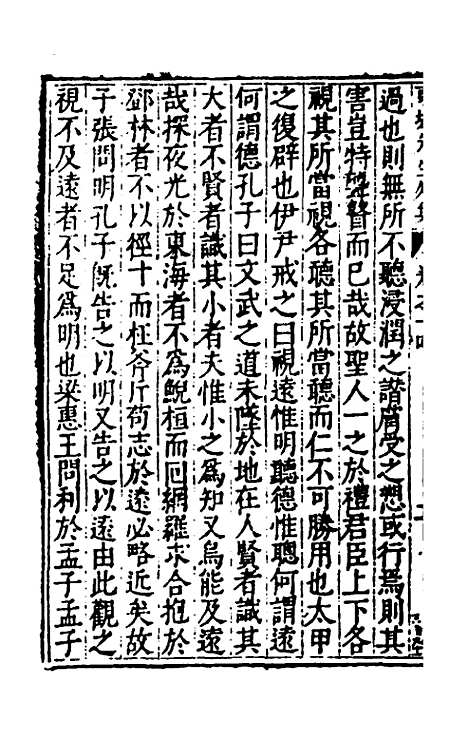 過也則無所不聽浸潤之譖膚受之愬或行焉則其
害豈特聾瞽而已哉故聖人一之於禮君臣上下各
視其所當視各聽其所當聽而仁不可勝用也太甲
之復辟也伊尹戒之曰視遠惟明聽德惟聰何謂遠
何謂德孔子曰文武之道未墜於地在人賢者識其
大者不賢者識其小者夫惟小之爲知又烏能及遠
哉探夜光於東海者不爲鯢桓而回網羅求合抱於
鄧林者不以徑寸而枉斧斤苟志於遠必略近矣故
子張問明孔子旣告之以明又告之以遠由此觀之
視不及遠者不足爲明也梁惠王問利於孟子孟子